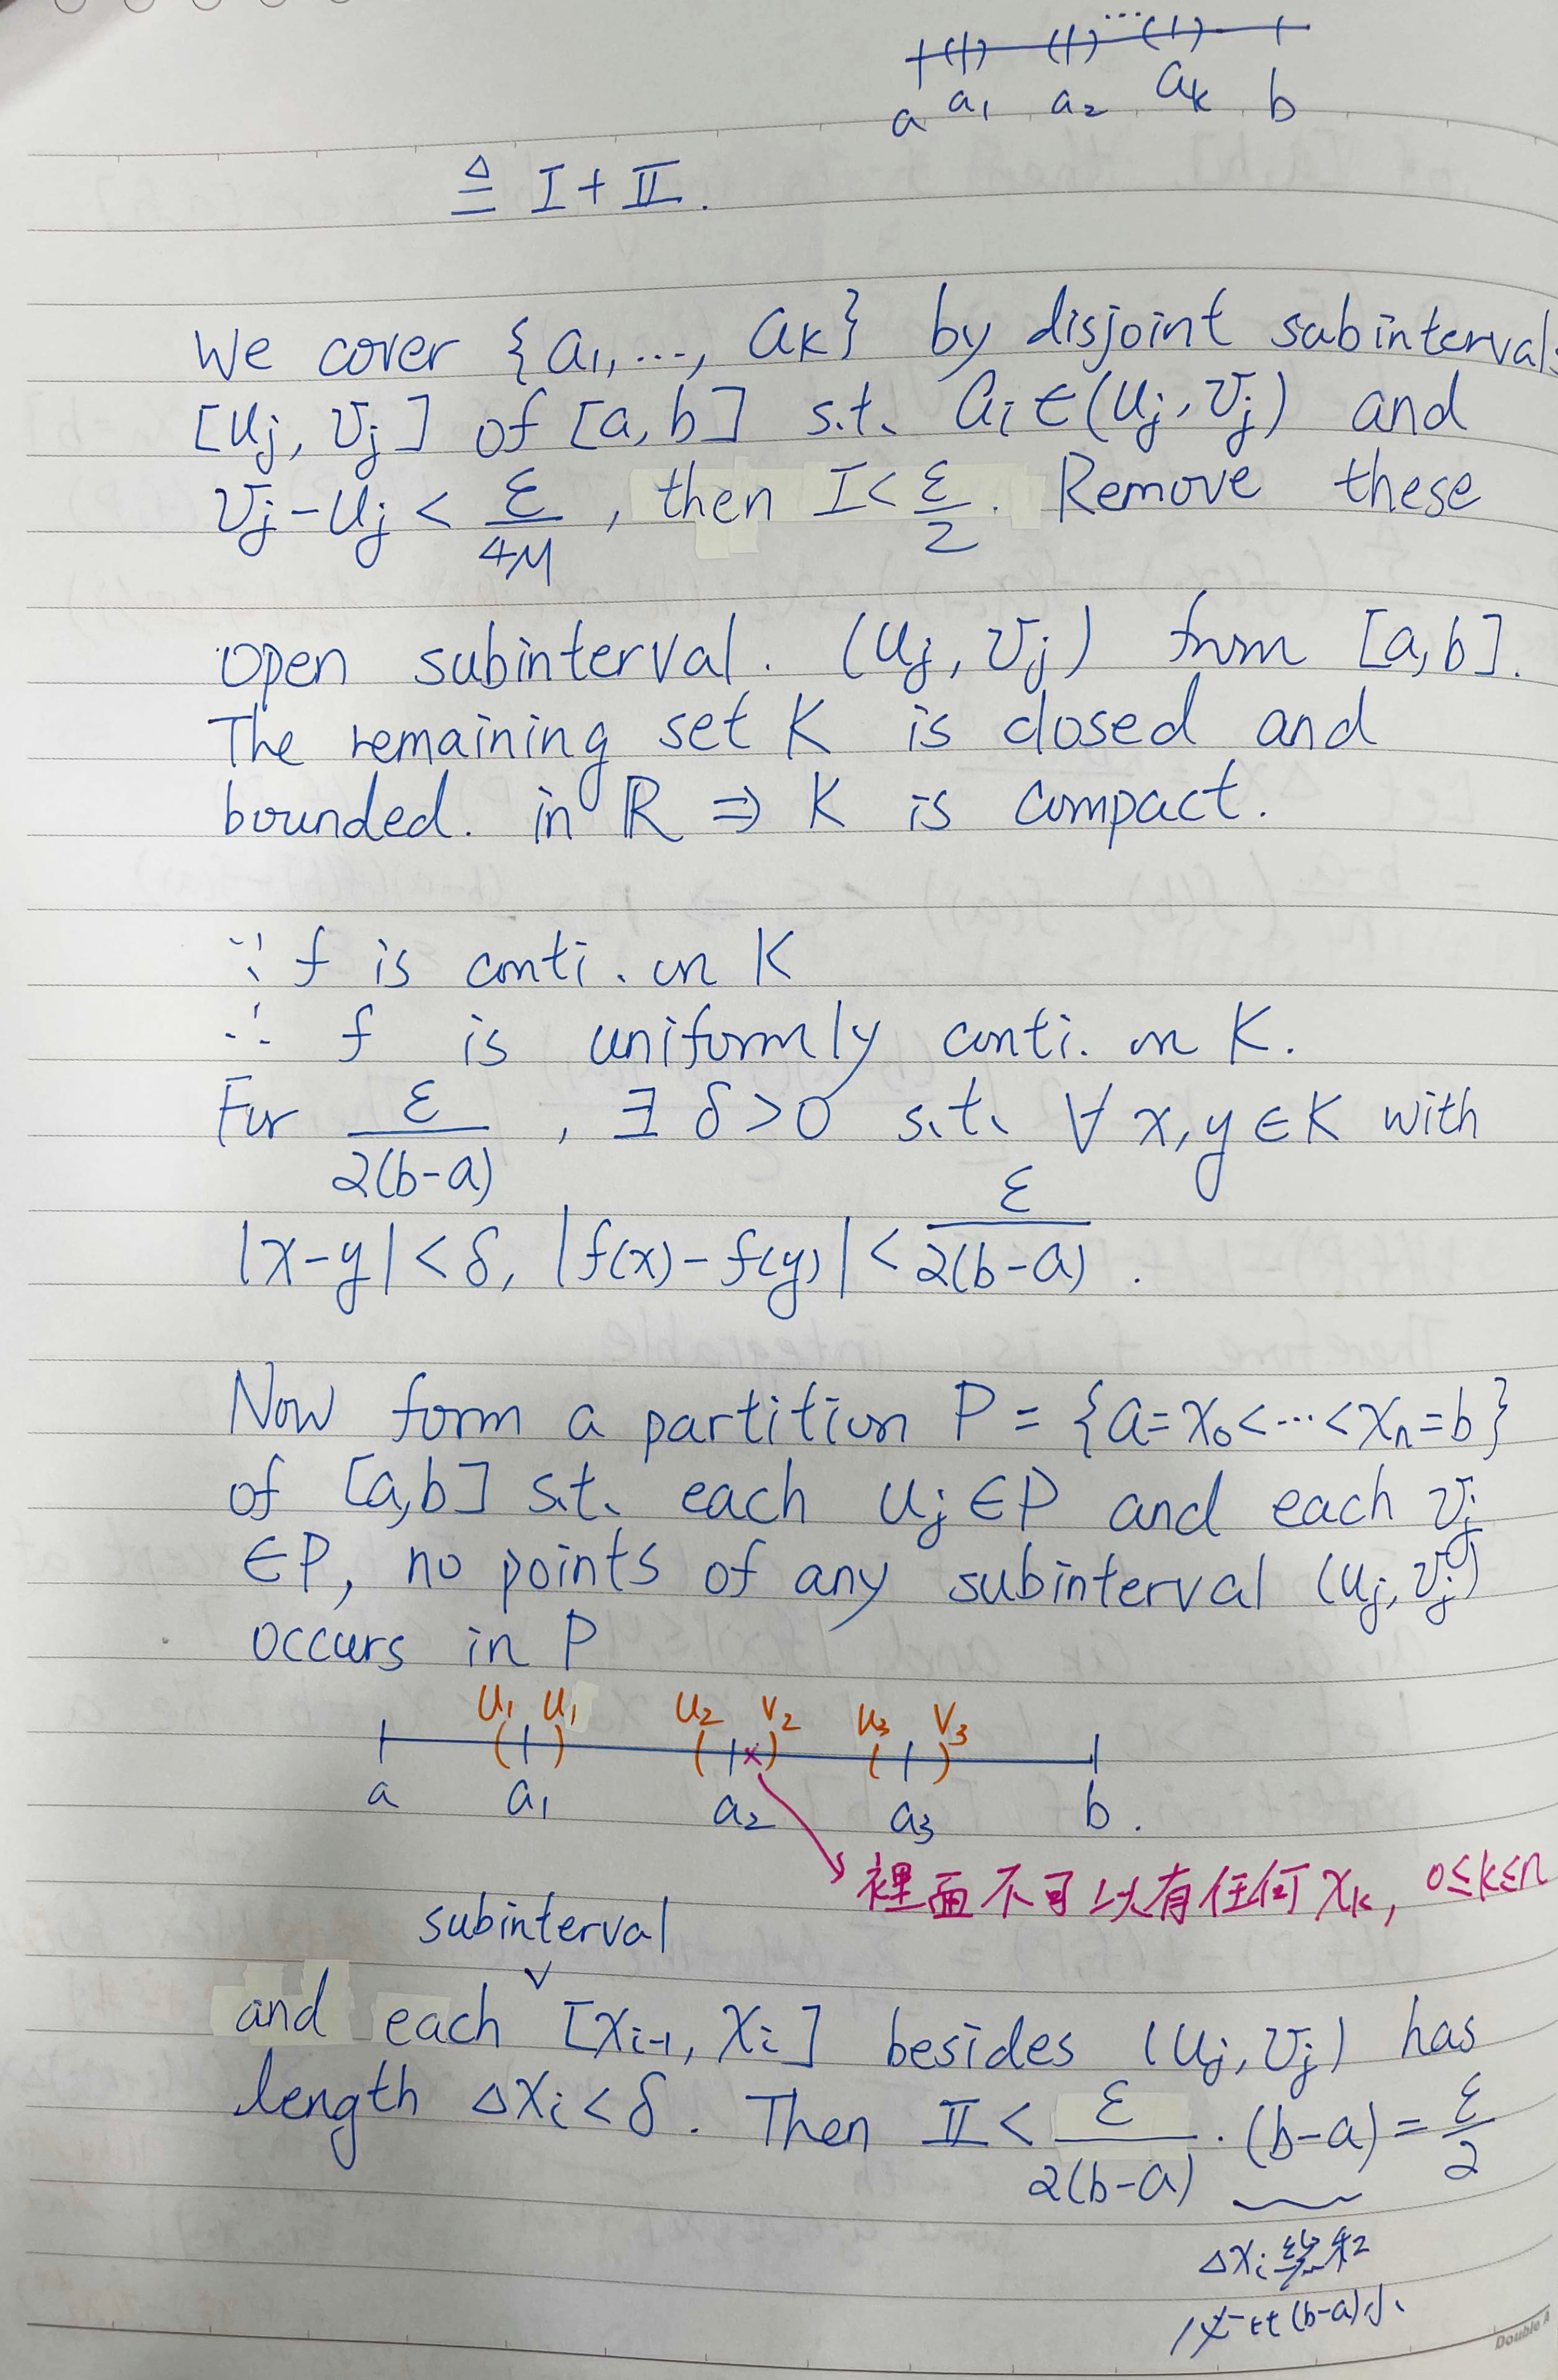 a a₁ a₂ ... aₖ b
≜ I + II.
We cover {a₁, ..., aₖ} by disjoint subintervals
[uⱼ, vⱼ] of [a, b] s.t. aᵢ ∈ (uⱼ, vⱼ) and
vⱼ - uⱼ < ε/4M, then I < ε/2. Remove these
open subinterval. (uⱼ, vⱼ) from [a, b].
The remaining set K is closed and
bounded. in ℝ ⇒ K is compact.
∵ f is conti. on K
∴ f is uniformly conti. on K.
For ε/2(b-a), ∃ δ > 0 s.t. ∀ x, y ∈ K with
|x-y| < δ, |f(x) - f(y)| < ε/2(b-a).
Now form a partition P = {a = x₀ < ... < xₙ = b}
of [a,b] s.t. each uⱼ ∈ P and each vⱼ
∈ P, no points of any subinterval (uⱼ, vⱼ)
occurs in P
u₁ u₁ u₂ v₂ u₃ v₃
a a₁ a₂ a₃ b.
裡面不可以有任何 xₖ, 0≤k≤n
subinterval
and each ∨ [xᵢ₋₁, xᵢ] besides (uⱼ, vⱼ) has
length Δxᵢ < δ. Then II < ε/2(b-a) · (b-a) = ε/2
Δxᵢ 總和
必比 (b-a) 小
Double A